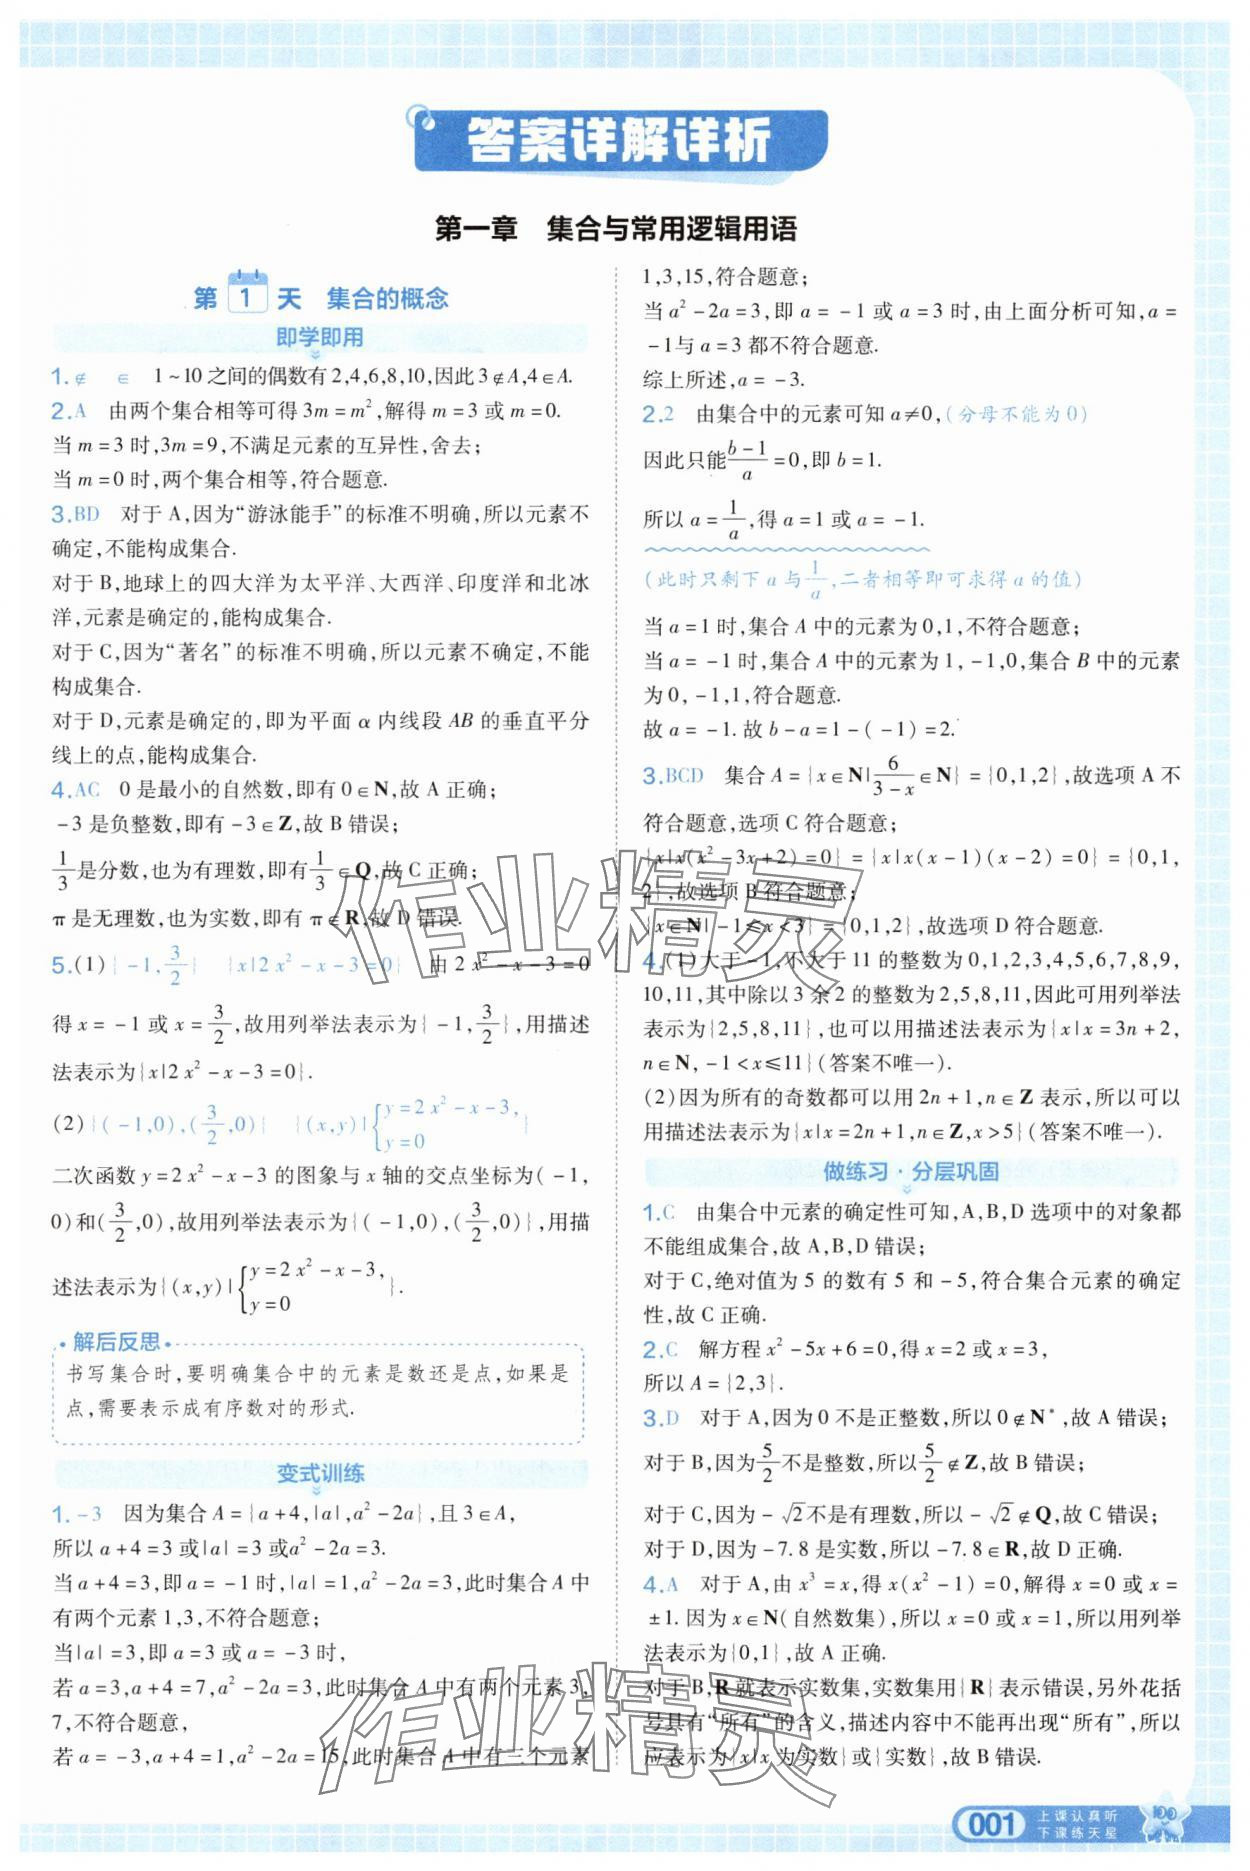 答案详解详析
第一章 集合与常用逻辑用语
第1天 集合的概念
即学即用
1.∉ ∈ 1~10之间的偶数有2,4,6,8,10,因此3∉A,4∈A.
2.A 由两个集合相等可得3m=m²,解得m=3或m=0.
当m=3时,3m=9,不满足元素的互异性,舍去;
当m=0时,两个集合相等,符合题意.
3.BD 对于A,因为“游泳能手”的标准不明确,所以元素不
确定,不能构成集合.
对于B,地球上的四大洋为太平洋、大西洋、印度洋和北冰
洋,元素是确定的,能构成集合.
对于C,因为“著名”的标准不明确,所以元素不确定,不能
构成集合.
对于D,元素是确定的,即为平面α内线段AB的垂直平分
线上的点,能构成集合.
4.AC 0是最小的自然数,即有0∈N,故A正确;
-3是负整数,即有-3∈Z,故B错误;
1/3是分数,也为有理数,即有1/3∈Q,故C正确;
π是无理数,也为实数,即有π∈R,故D错误.
5.(1){-1,3/2} {x|2x²-x-3=0} 由2x²-x-3=0
得x=-1或x=3/2,故用列举法表示为{-1,3/2},用描述
法表示为{x|2x²-x-3=0}.
(2){(-1,0),(3/2,0)} {(x,y)|{y=2x²-x-3, y=0}
二次函数y=2x²-x-3的图象与x轴的交点坐标为(-1,
0)和(3/2,0),故用列举法表示为{(-1,0),(3/2,0)},用描
述法表示为{(x,y)|{y=2x²-x-3, y=0}.
解后反思
书写集合时,要明确集合中的元素是数还是点,如果是
点,需要表示成有序数对的形式.
变式训练
1.-3 因为集合A={a+4,|a|,a²-2a},且3∈A,
所以a+4=3或|a|=3或a²-2a=3.
当a+4=3,即a=-1时,|a|=1,a²-2a=3,此时集合A中
有两个元素1,3,不符合题意;
当|a|=3,即a=3或a=-3时,
若a=3,a+4=7,a²-2a=3,此时集合A中有两个元素3,
7,不符合题意,
若a=-3,a+4=1,a²-2a=15,此时集合A中有三个元素
1,3,15,符合题意;
当a²-2a=3,即a=-1或a=3时,由上面分析可知,a=
-1与a=3都不符合题意.
综上所述,a=-3.
2.2 由集合中的元素可知a≠0,(分母不能为0)
因此只能(b-1)/a=0,即b=1.
所以a=1/a,得a=1或a=-1.
(此时只剩下a与1/a,二者相等即可求得a的值)
当a=1时,集合A中的元素为0,1,不符合题意;
当a=-1时,集合A中的元素为1,-1,0,集合B中的元素
为0,-1,1,符合题意.
故a=-1.故b-a=1-(-1)=2.
3.BCD 集合A={x∈N|6/(3-x)∈N}={0,1,2},故选项A不
符合题意,选项C符合题意;
{x|x(x²-3x+2)=0}={x|x(x-1)(x-2)=0}={0,1,
2},故选项B符合题意;
{x∈N|-1≤x<3}={0,1,2},故选项D符合题意.
4.(1)大于-1,不大于11的整数为0,1,2,3,4,5,6,7,8,9,
10,11,其中除以3余2的整数为2,5,8,11,因此可用列举法
表示为{2,5,8,11},也可以用描述法表示为{x|x=3n+2,
n∈N,-1<x≤11}(答案不唯一).
(2)因为所有的奇数都可以用2n+1,n∈Z表示,所以可以
用描述法表示为{x|x=2n+1,n∈Z,x>5}(答案不唯一).
做练习·分层巩固
1.C 由集合中元素的确定性可知,A,B,D选项中的对象都
不能组成集合,故A,B,D错误;
对于C,绝对值为5的数有5和-5,符合集合元素的确定
性,故C正确.
2.C 解方程x²-5x+6=0,得x=2或x=3,
所以A={2,3}.
3.D 对于A,因为0不是正整数,所以0∉N*,故A错误;
对于B,因为5/2不是整数,所以5/2∉Z,故B错误;
对于C,因为-√2不是有理数,所以-√2∉Q,故C错误;
对于D,因为-7.8是实数,所以-7.8∈R,故D正确.
4.A 对于A,由x³=x,得x(x²-1)=0,解得x=0或x=
±1.因为x∈N(自然数集),所以x=0或x=1,所以用列举
法表示为{0,1},故A正确.
对于B,R就表示实数集,实数集用{R}表示错误,另外花括
号具有“所有”的含义,描述内容中不能再出现“所有”,所以
应表示为{x|x为实数}或{实数},故B错误.
作业精灵
作业精灵
001
上课认真听
下课练天星
100